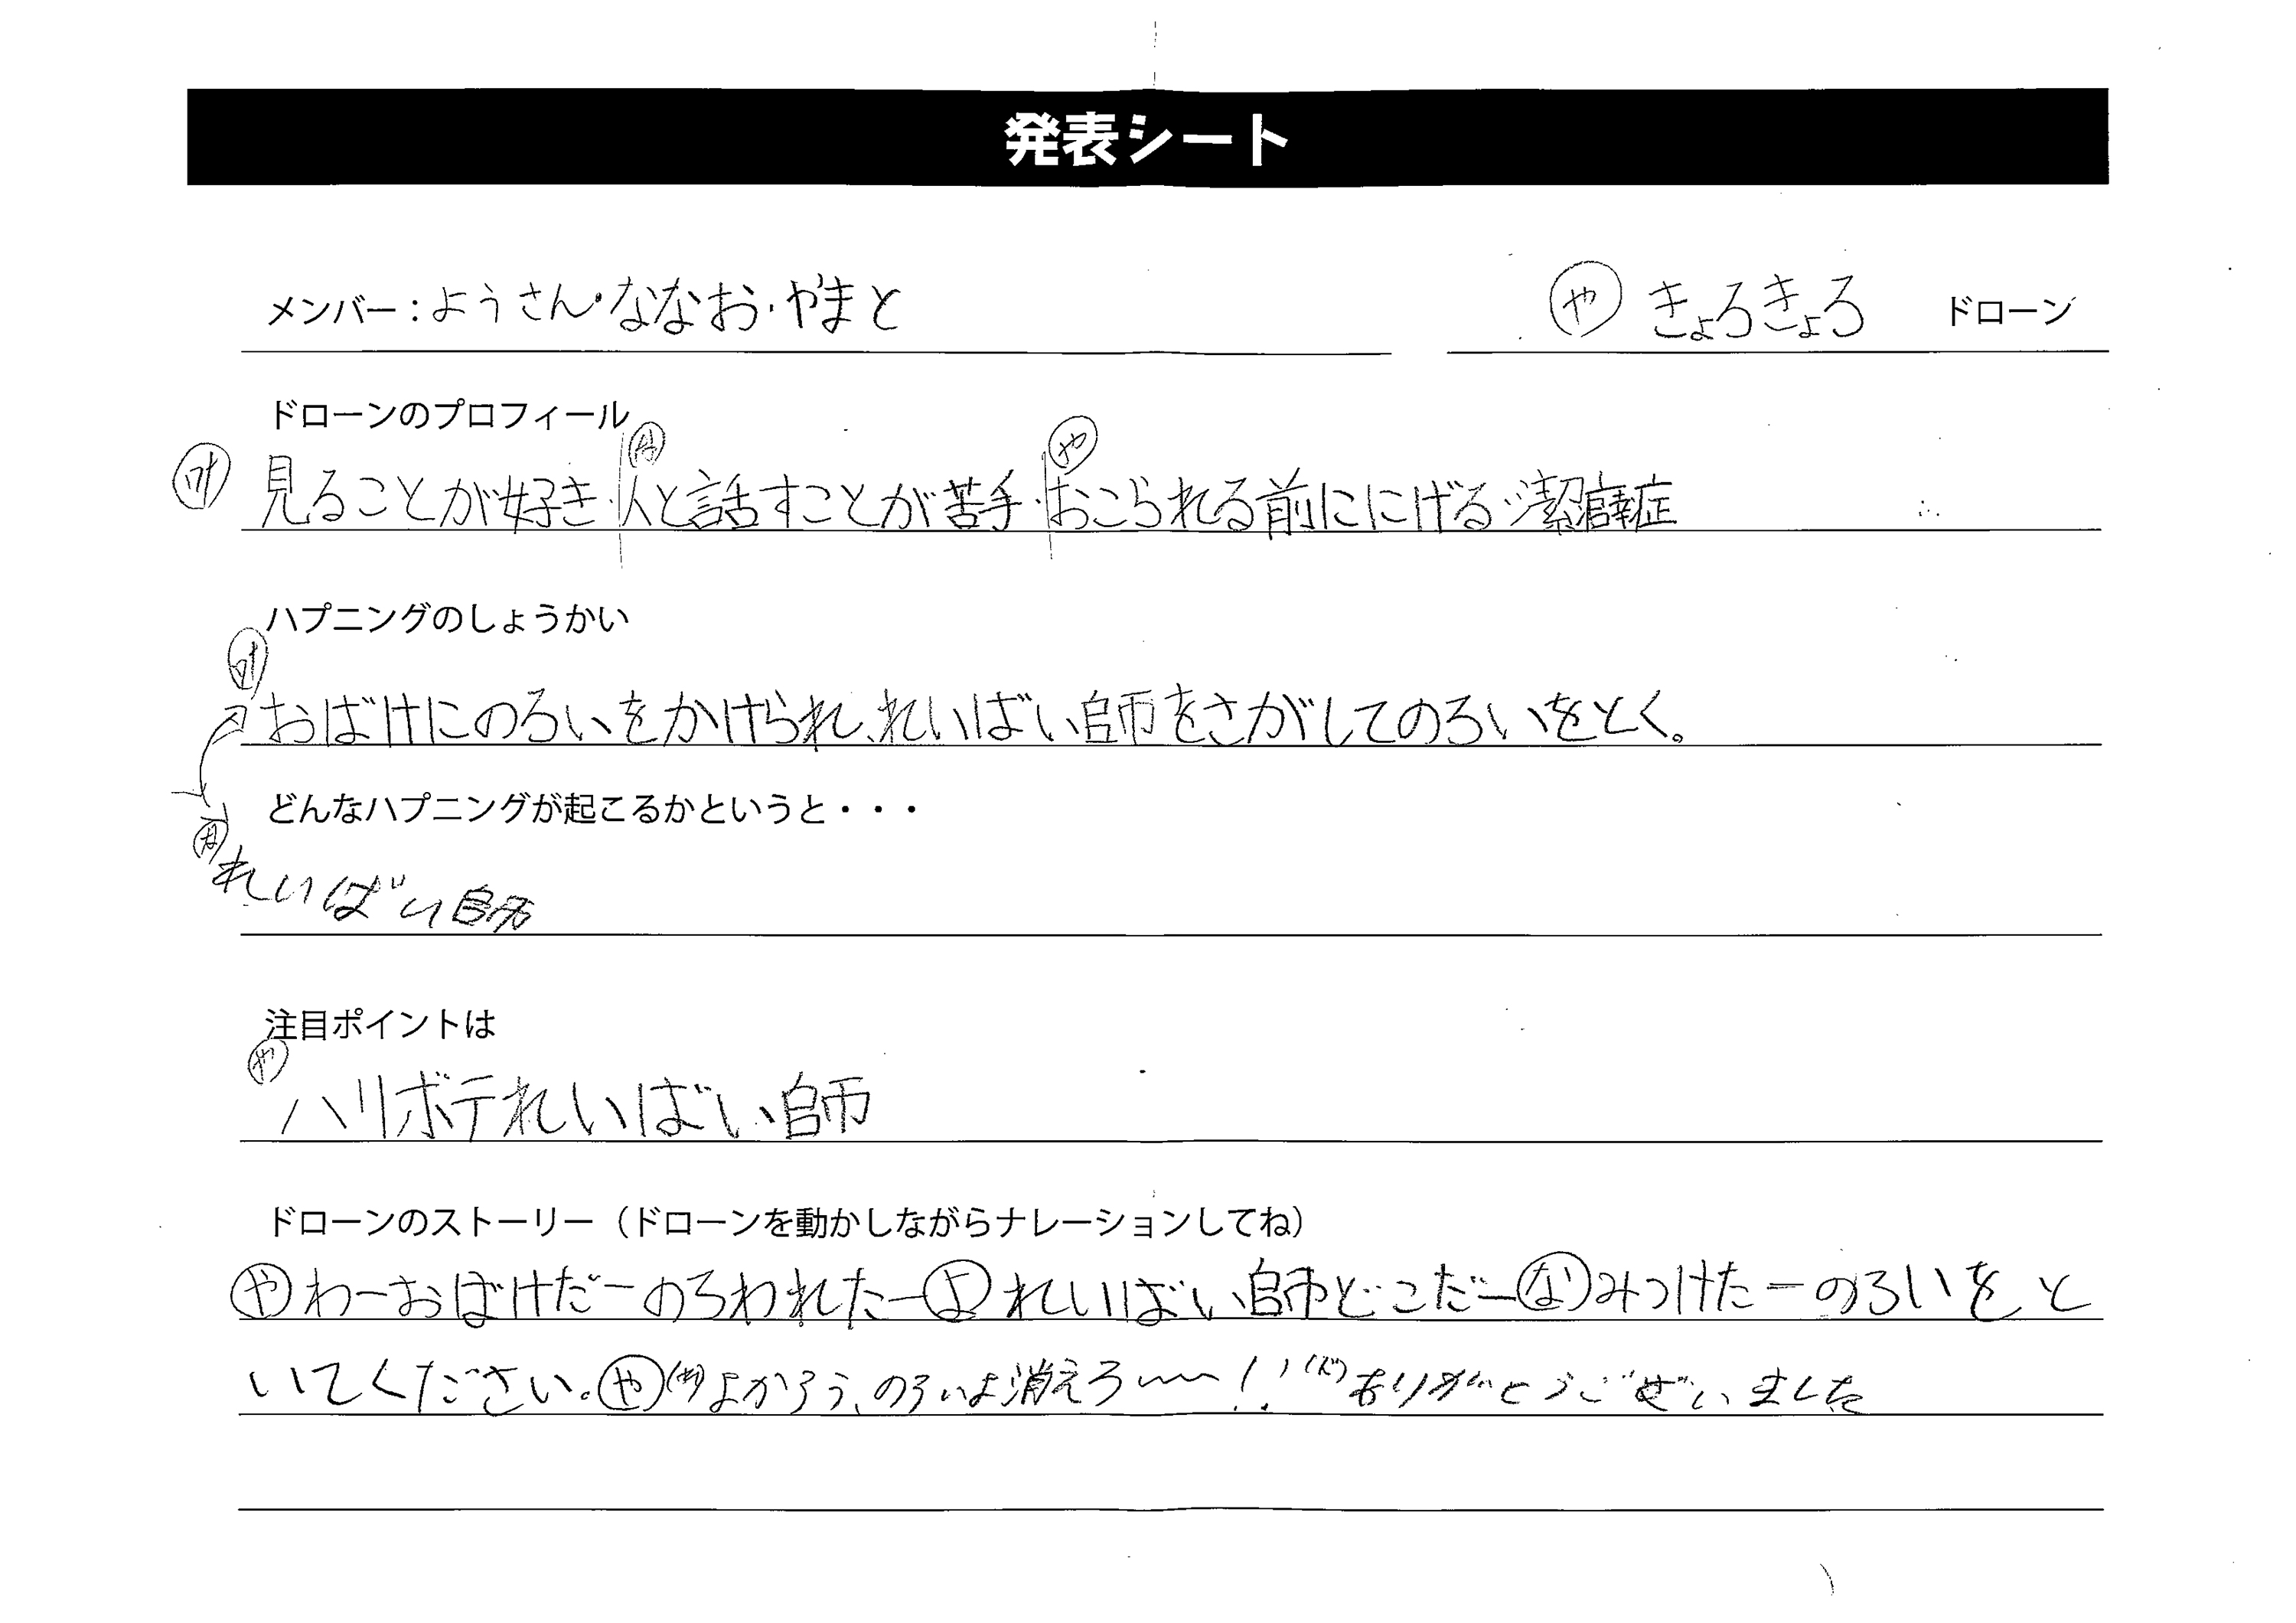 発表シート
メンバー：ようさん・ななお・やまと
や きょろきょろ ドローン
ドローンのプロフィール
見ることが好き・人と話すことが苦手・おこられる前ににげる・潔癖症
な や
ハプニングのしょうかい
おばけにのろいをかけられ、れいばい師をさがしてのろいをとく。
どんなハプニングが起こるかというと・・・
な
れいばい師
注目ポイントは
や
ハリボテれいばい師
ドローンのストーリー（ドローンを動かしながらナレーションしてね）
や わーおばけだーのろわれたー よ れいばい師どこだー な みつけたーのろいをと
いてください。 や よかろう、のろいよ消えろ〜〜！！ ありがとうございました